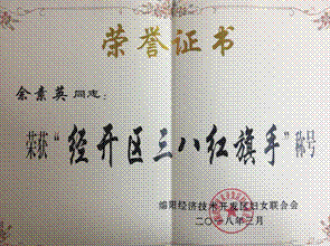 荣誉证书
余素英同志：
荣获“经开区三八红旗手”称号
绵阳经济技术开发区妇女联合会
二〇一八年三月